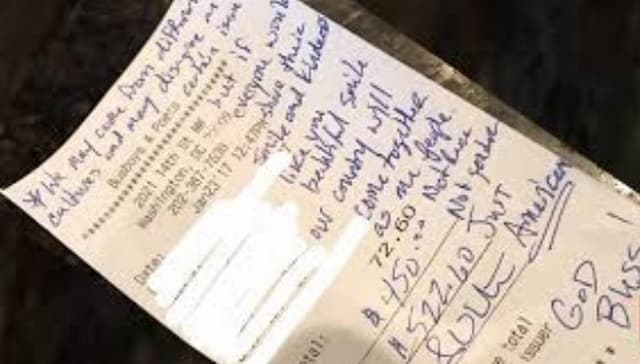 * We may come from different
cultures and may disagree on
certain issues
but if
everyone would
share their
smile and kindness
like your
beautiful smile
our country will
come together
as one people
Not Race
Not gender
Just
American
God
Bless!
Busboys & Poets
2021 14th St NW
Washington, DC
202-387-7638
Jan23'17 12:
Date:
72.60
$ 450.00
$ 522.60
total
issuer